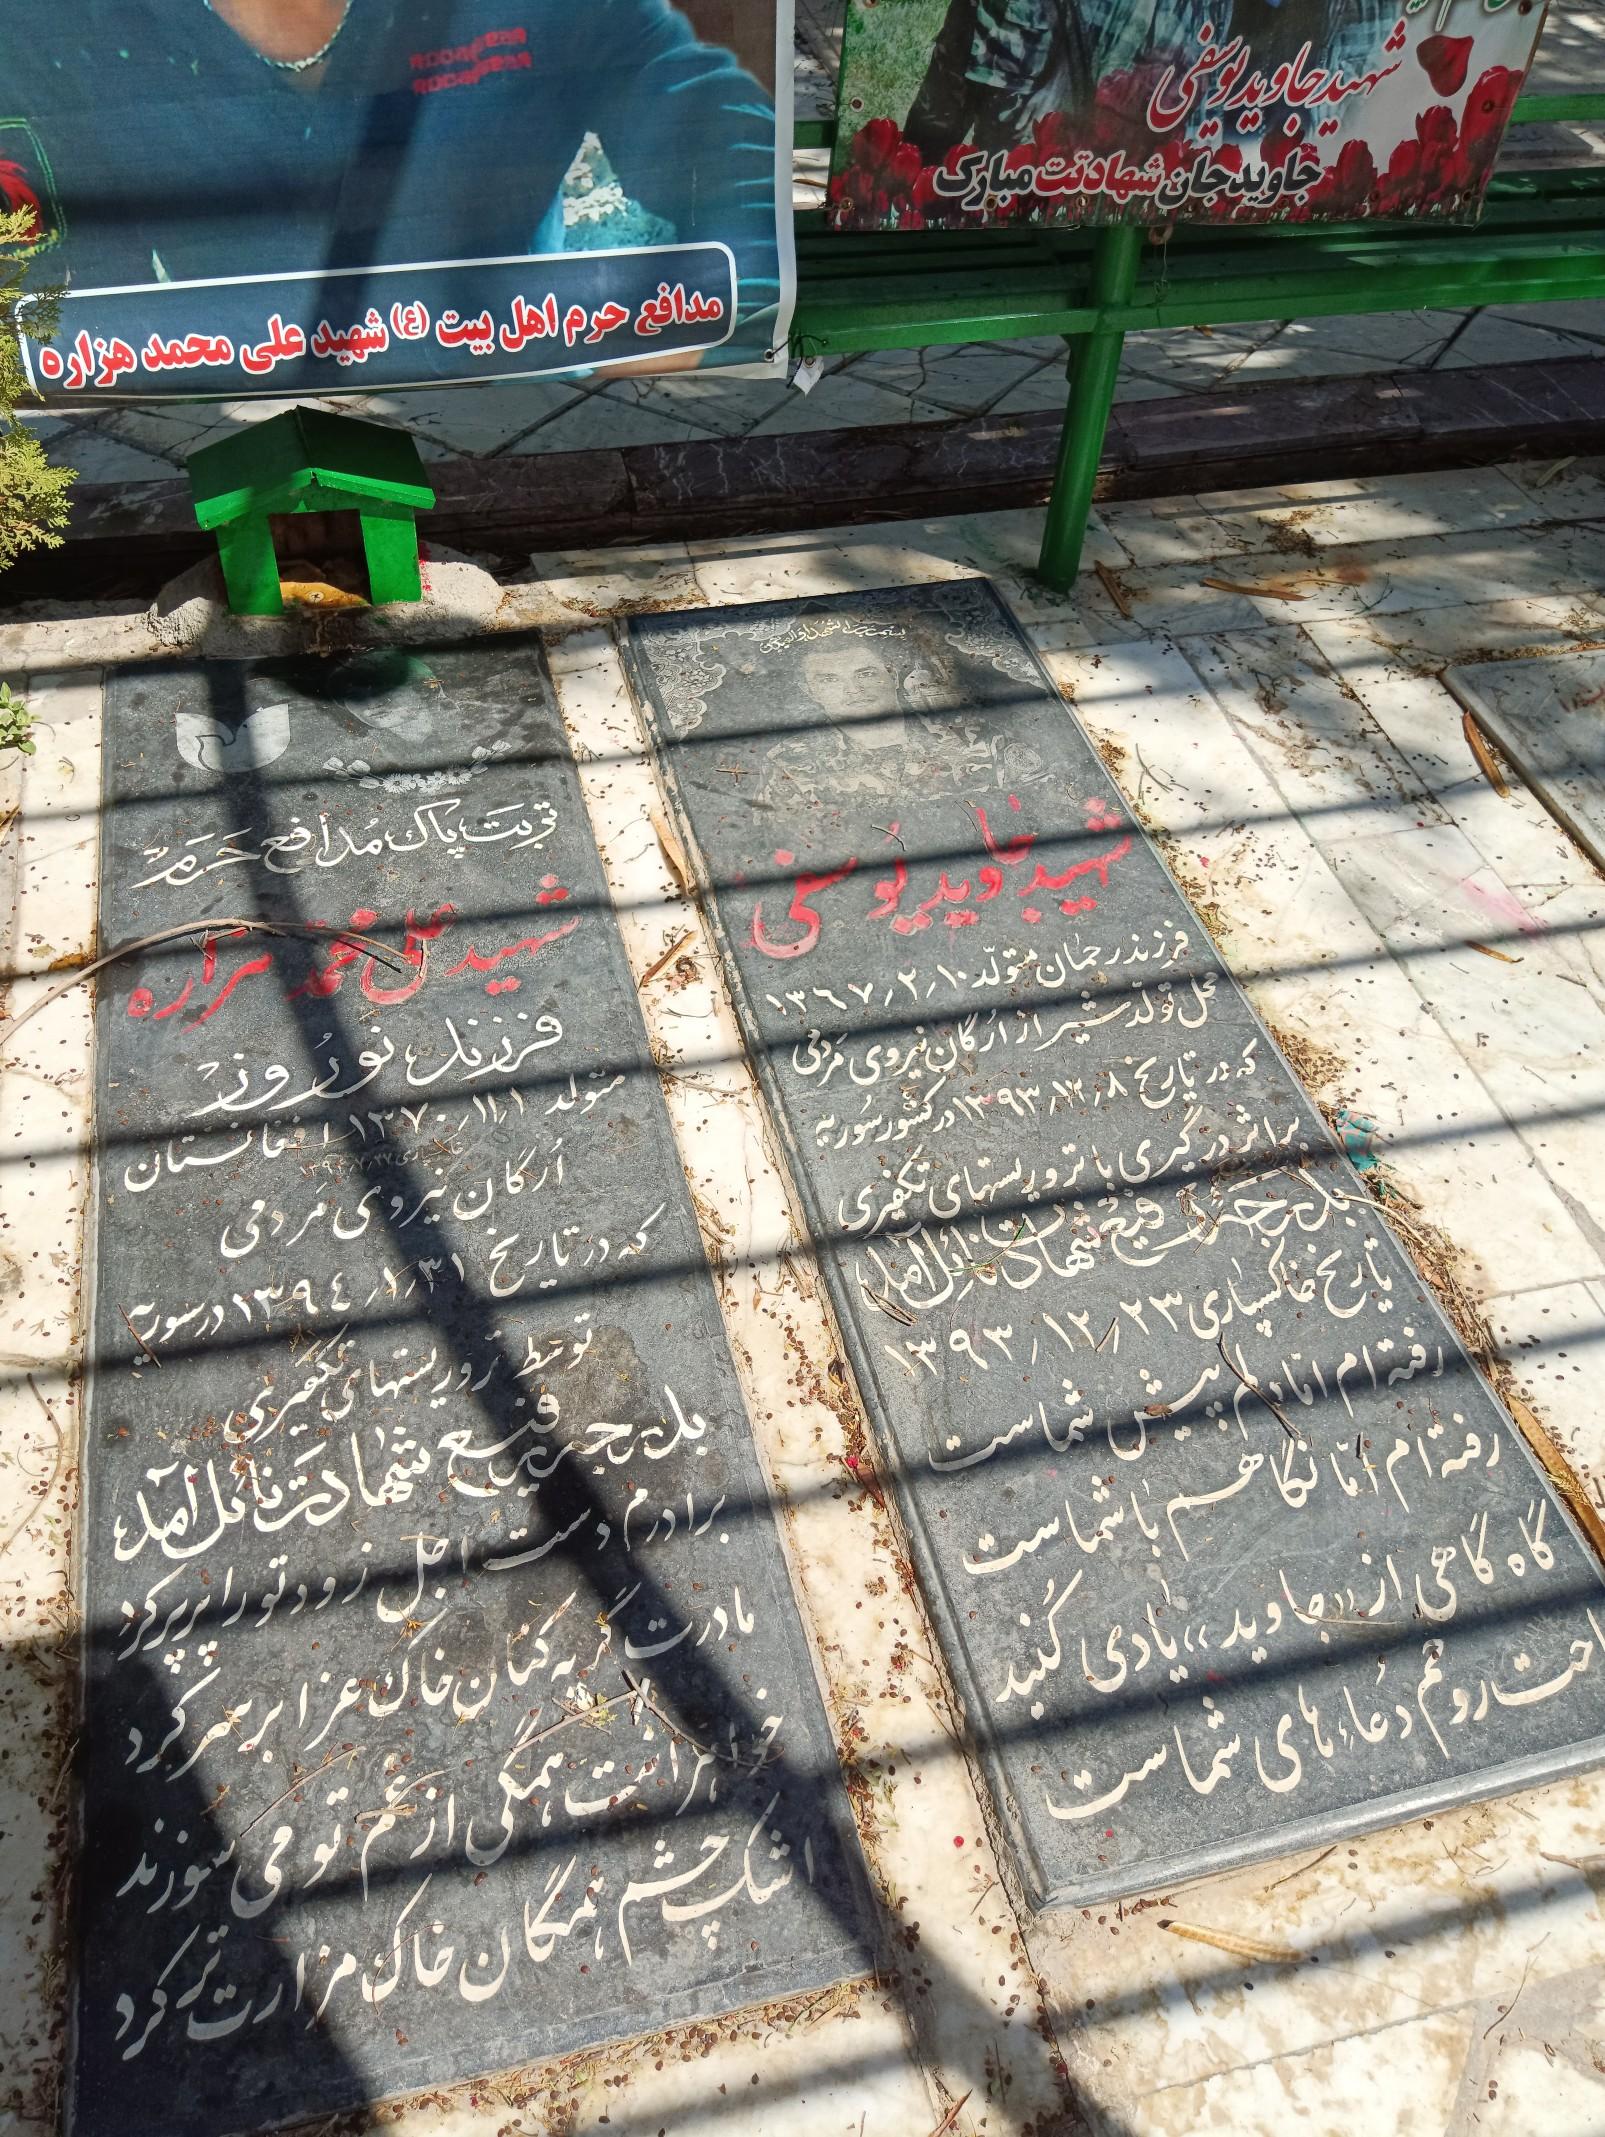 شهید جاوید یوسفی
جاوید جان شهادتت مبارک
مدافع حرم اهل بیت (ع) شهید علی محمد هزاره
شهید جاوید یوسفی
فرزند رجمان متولّد ۱۰٫۲٫۱۳٦۷
محل تولّد شیراز ارگان نیروی مردمی
که در تاریخ ۸٫۱۲٫۱۳۹۳ در کشور سوریه
براثر درگیری با تروریستهای تکفیری
بدرجه رفیع شهادت نائل آمد
تاریخ خاکسپاری ۲۳٫۱۲٫۱۳۹۳
رفته ام امّا دلم پیش شماست
رفته ام امّا نگاهم با شماست
گاه گاهی از «جاوید» یادی کنید
احت روحم دعاء های شماست
تربت پاک مدافع حرم
شهید علی محمد هزاره
فرزند نوروز
متولد ۱٫۱۱٫۱۳۷۰ افغانستان
ارگان نیروی مردمی
که در تاریخ ۳۱٫۱٫۱۳۹٤ در سوریه
توسط تروریستهای تکفیری
بدرجه رفیع شهادت نائل آمد
برادرم دست اجل زود تو را پرپر کرد
مادرت گریه کنان خاک عزا بر سر کرد
خواهرانت همگی از غم تو می سوزند
اشک چشم همگان خاک مزارت تر کرد